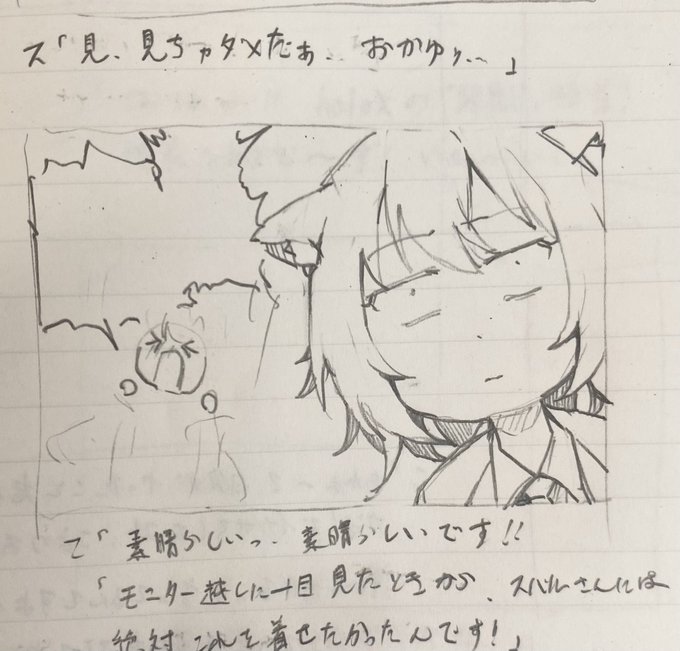 ス「見、見ちゃダメだぁ… おかゆぅ…」
て「素晴らしいっ、素晴らしいです!!
「モニター越しに一目見たときから、スバルさんには
絶対これを着せたかったんです!」